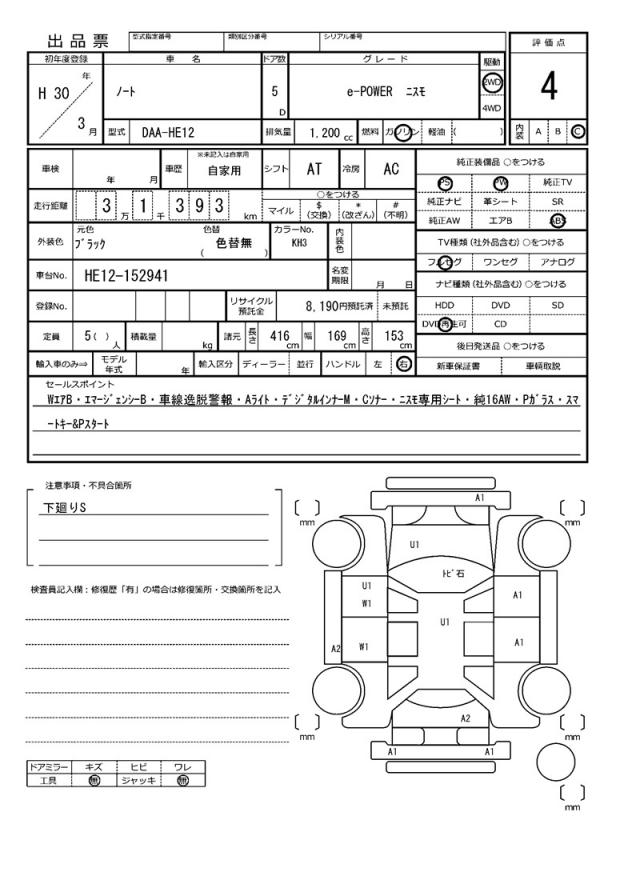 出品票
型式指定番号 類別区分番号 シリアル番号
評価点
初年度登録 車名 ドア数 グレード 駆動
H 30 年 ノート 5 D e-POWER ニスモ 2WD 4WD 4
3 月 型式 DAA-HE12 排気量 1.200 cc 燃料 ガソリン 軽油 ( ) 内装 A B C
車検 年 月 車歴 ※未記入は自家用 自家用 シフト AT 冷房 AC
純正装備品 ○をつける
PS PW 純正TV
純正ナビ 革シート SR
純正AW エアB ABS
走行距離 3 万 1 千 3 9 3 km
○をつける
マイル $(交換) *(改ざん) #(不明)
外装色 元色 ブラック 色替 ( 色替無 ) カラーNo. KH3 内装色
TV種類 (社外品含む) ○をつける
フルセグ ワンセグ アナログ
車台No. HE12-152941 名変期限 月 日
ナビ種類 (社外品含む) ○をつける
HDD DVD SD
DVD再生可 CD
登録No. リサイクル預託金 8,190円預託済 未預託
定員 5( ) 人 積載量 kg 諸元 長さ 416 cm 幅 169 cm 高さ 153 cm
後日発送品 ○をつける
新車保証書 車輌取説
輸入車のみ⇒ モデル年式 年 輸入区分 ディーラー 並行 ハンドル 左 右
セールスポイント
WエアB・エマージェンシーB・車線逸脱警報・Aライト・デジタルインナーM・Cソナー・ニスモ専用シート・純16AW・Pガラス・スマ
ートキー&Pスタート
注意事項・不具合箇所
下廻りS
検査員記入欄:修復歴「有」の場合は修復箇所・交換箇所を記入
A1
mm mm
U1
トビ石
U1
W1
A1
U1
A2 W1
A1
A2
mm mm
A1 A1
mm
ドアミラー キズ ヒビ ワレ
工具 無 ジャッキ 無